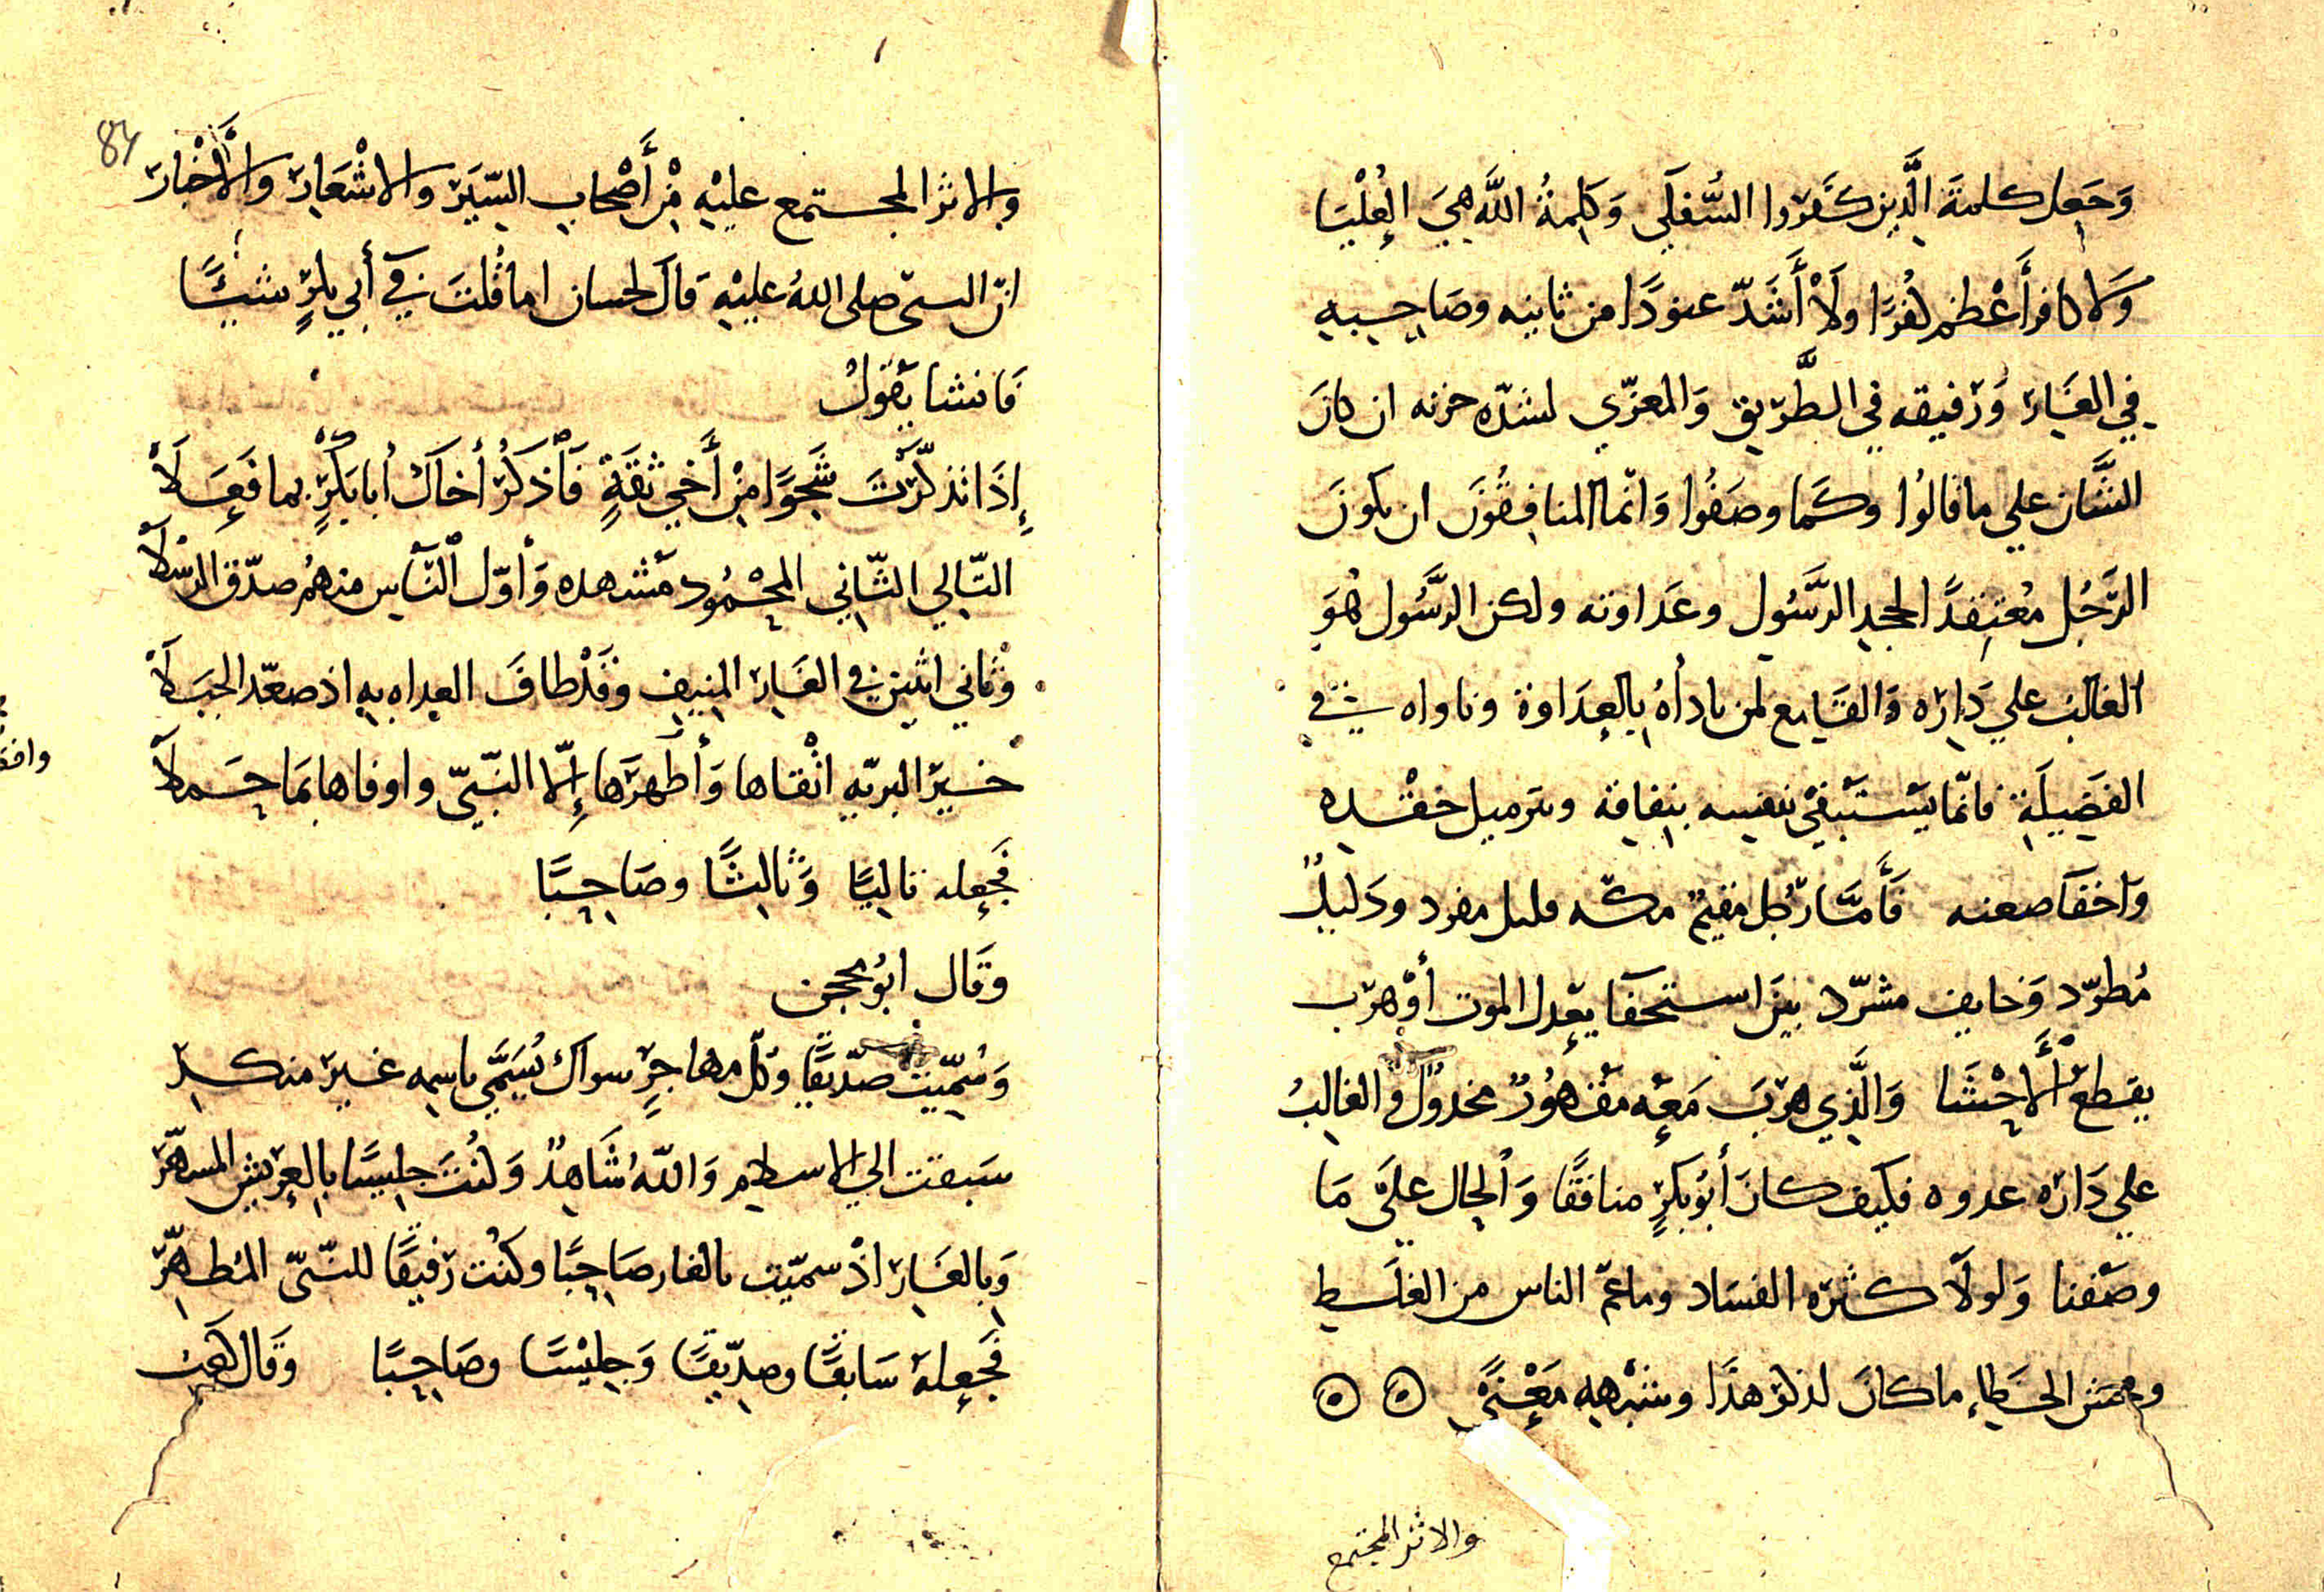 وَجَعل كلمةَ الَّذِين كَفَرُوا السُّفلَى وَكلِمةُ اللَّه هِيَ العُلْيَا
وَلا كافر أَعْظم كفرًا ولَا أَشَدّ عنودًا من ثانيه وصَاحِبهِ
فِي الغَار وَرَفيقه فِي الطَّريق وَالمعزّي لشدّه حزنه ان كانَ
الشَّان علي ما قالُوا وكَما وصَفُوا وَانّما المنافِقُونَ ان يكونَ
الرَّجُل مُعتقدًا لجحد الرَّسُول وعَداوته ولكن الرَّسُول هُوَ
الغالبَ علي دَاره وَالقَامع لمن باداهُ بِالعِدَاوة وناواه في
الفَضِيلَةِ فانّما يسْتَبْقي نفسه بنِفاقه وترميل حقْده
وَاخفا ضعنه فَأَمَّا رجُل مقيمٌ مكّه قليل مفرد وذَليلٌ
مُطرّد وَخايف مشرّد بينَ استخفا يعْدل الموت أوْ هرَب
يقطعُ الأَحْشَا وَالَّذِي هرَبَ مَعِه مَقْهُورٌ مخذولٌ والغالبُ
علي دَاره عدوه فكيف كانَ أَبُو بَكرٍ منافقًا وَالحال علَى مَا
وصَفنا وَلولا كثره الفسَاد وما عمّ الناس من الغلَط
وفحش الخَطاءِ ما كانَ لذكر هذَا وشبْههِ مَعْنًى
والاثر المجتمع
84
والاثر المجتمع عليْهِ مِنْ أَصْحاب السّيَر والاشْعَار وَالأَخْبار
انّ النبيّ صلى اللهُ عليْهِ قالَ لحسان اما قُلتَ فِي أَبِي بكرٍ شيئًا
فَانشا يَقولُ
إِذَا تذكّرْتَ شَجْوًا مِنْ أَخِي ثقَةٍ فَاذكُرْ أخاكَ أَبا بَكْرٍ بما فَعَلَا
التّالي الثّاني المحْمُود مَشهده وَأوّل النّاسِ منهمُ صدّق الرسلا
وثَاني اثنين في الغَار المنِيفِ وَقَدْ طافَ العداه بهِ اذ صعّد الجبَلَا
خيرَ البريّهِ اتْقاها وَأطهرَها إِلّا النّبيّ واوفاها بمَا حَملا
فَجعله تاليًا وَثالِثًا وصَاحِبًا
وقَال ابُو محجن
وَسُمِّيت صدّيقًا وَكلّ مهاجرٍ سواك يُسَمَّي باسمِه غير منكرِ
سَبقت الي الاسلام وَاللهُ شَاهدٌ وَكُنْتَ جلِيسًا بِالعرِيش المشهّر
وَبِالغَار اذْ سميّت بالغار صَاحِبًا وكنْت رَفيقًا للنبّيّ المُطهَّر
فَجعله سَابقًا وصدّيقًا وَجليْسًا وصَاحِبًا وَقَال كعَب